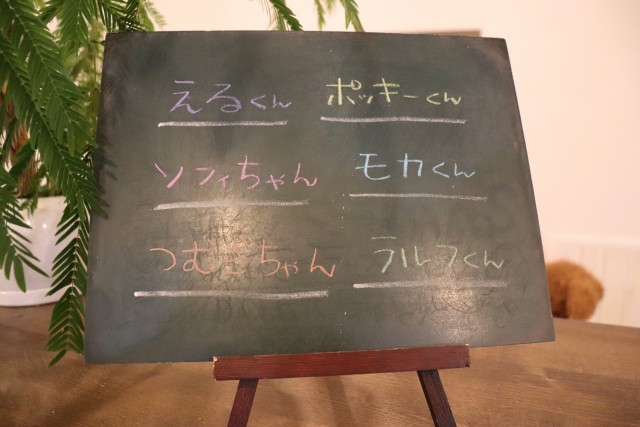 えるくん ポッキーくん
ソフィちゃん モカくん
つむぎちゃん ラルフくん